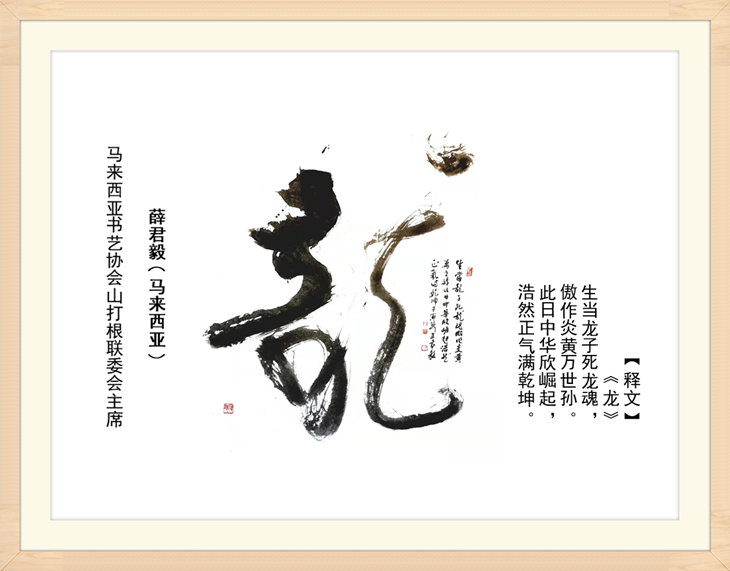 【释文】
《龙》
生当龙子死龙魂，
傲作炎黄万世孙。
此日中华欣崛起，
浩然正气满乾坤。
龍
薛君毅（马来西亚）
马来西亚书艺协会山打根联委会主席